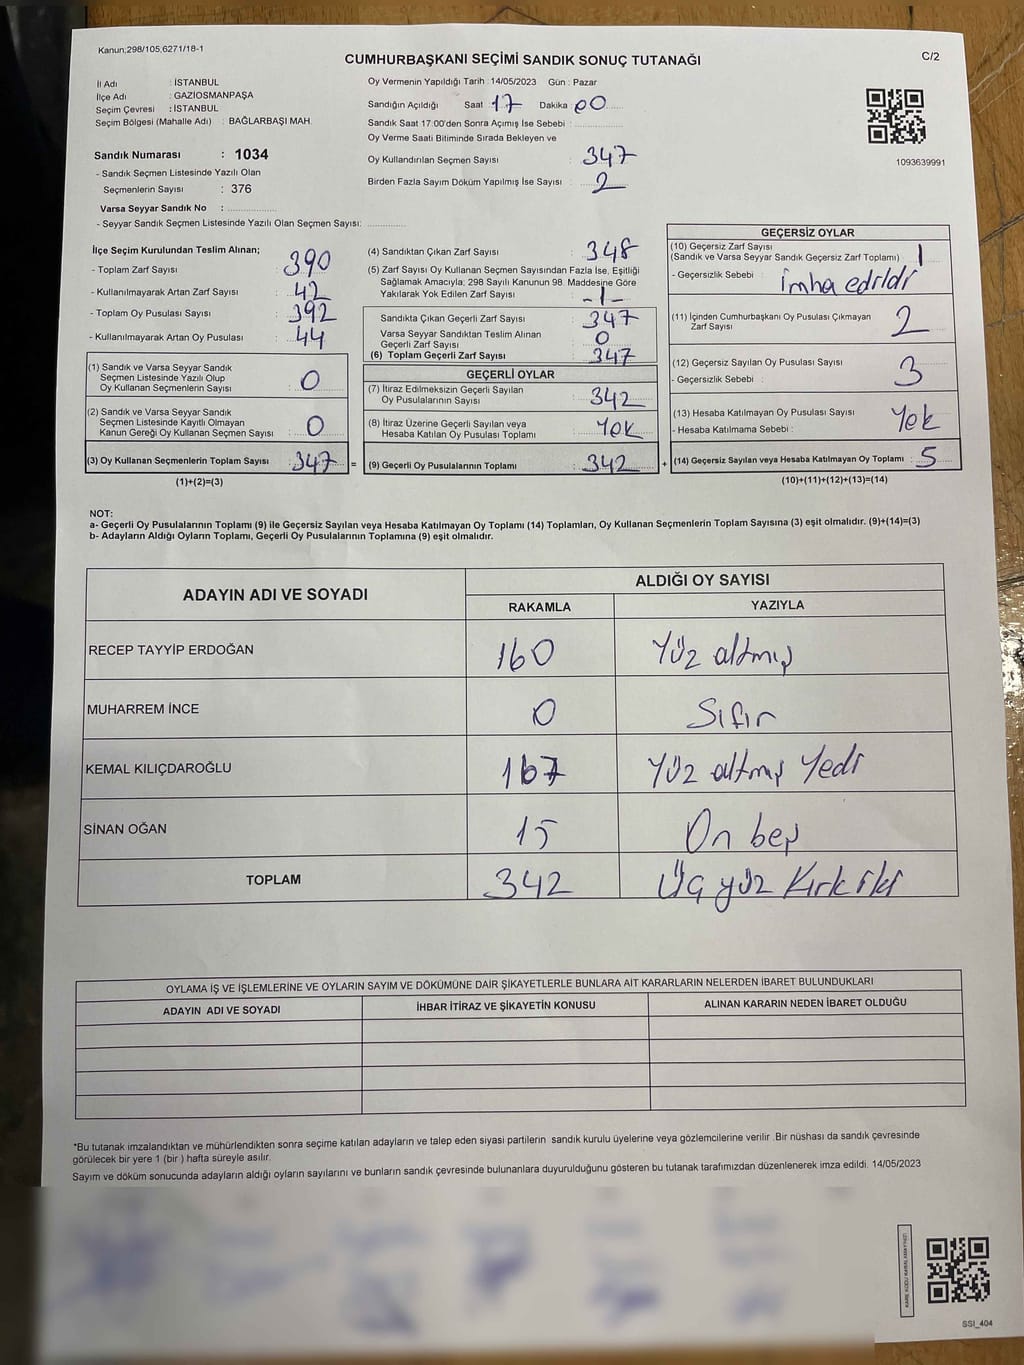 Kanun;298/105,6271/18-1
CUMHURBAŞKANI SEÇİMİ SANDIK SONUÇ TUTANAĞI
C/2
İl Adı : İSTANBUL
İlçe Adı : GAZİOSMANPAŞA
Seçim Çevresi : İSTANBUL
Seçim Bölgesi (Mahalle Adı) : BAĞLARBAŞI MAH.
Sandık Numarası : 1034
- Sandık Seçmen Listesinde Yazılı Olan
Seçmenlerin Sayısı : 376
Varsa Seyyar Sandık No : ..............
- Seyyar Sandık Seçmen Listesinde Yazılı Olan Seçmen Sayısı: ............
Oy Vermenin Yapıldığı Tarih : 14/05/2023 Gün : Pazar
Sandığın Açıldığı Saat : 17 Dakika : 00
Sandık Saat 17:00'den Sonra Açımış İse Sebebi : ............
Oy Verme Saati Bitiminde Sırada Bekleyen ve
Oy Kullandırılan Seçmen Sayısı : 347
Birden Fazla Sayım Döküm Yapılmış İse Sayısı : 2
1093639991
İlçe Seçim Kurulundan Teslim Alınan;
- Toplam Zarf Sayısı : 390
- Kullanılmayarak Artan Zarf Sayısı : 42
- Toplam Oy Pusulası Sayısı : 392
- Kullanılmayarak Artan Oy Pusulası : 44
(1) Sandık ve Varsa Seyyar Sandık
Seçmen Listesinde Yazılı Olup
Oy Kullanan Seçmenlerin Sayısı : 0
(2) Sandık ve Varsa Seyyar Sandık
Seçmen Listesinde Kayıtlı Olmayan
Kanun Gereği Oy Kullanan Seçmen Sayısı : 0
(3) Oy Kullanan Seçmenlerin Toplam Sayısı : 347 =
(1)+(2)=(3)
(4) Sandıktan Çıkan Zarf Sayısı : 348
(5) Zarf Sayısı Oy Kullanan Seçmen Sayısından Fazla İse, Eşitliği
Sağlamak Amacıyla; 298 Sayılı Kanunun 98. Maddesine Göre
Yakılarak Yok Edilen Zarf Sayısı : -1-
Sandıkta Çıkan Geçerli Zarf Sayısı : 347
Varsa Seyyar Sandıktan Teslim Alınan
Geçerli Zarf Sayısı : 0
(6) Toplam Geçerli Zarf Sayısı : 347
GEÇERLİ OYLAR
(7) İtiraz Edilmeksizin Geçerli Sayılan
Oy Pusulalarının Sayısı : 342
(8) İtiraz Üzerine Geçerli Sayılan veya
Hesaba Katılan Oy Pusulası Toplamı : Yok
(9) Geçerli Oy Pusulalarının Toplamı : 342 +
GEÇERSİZ OYLAR
(10) Geçersiz Zarf Sayısı
(Sandık ve Varsa Seyyar Sandık Geçersiz Zarf Toplamı) : 1
- Geçersizlik Sebebi : imha edildi
(11) İçinden Cumhurbaşkanı Oy Pusulası Çıkmayan
Zarf Sayısı : 2
(12) Geçersiz Sayılan Oy Pusulası Sayısı : 3
- Geçersizlik Sebebi :
(13) Hesaba Katılmayan Oy Pusulası Sayısı : Yok
- Hesaba Katılmama Sebebi :
(14) Geçersiz Sayılan veya Hesaba Katılmayan Oy Toplamı : 5
(10)+(11)+(12)+(13)=(14)
NOT:
a- Geçerli Oy Pusulalarının Toplamı (9) ile Geçersiz Sayılan veya Hesaba Katılmayan Oy Toplamı (14) Toplamları, Oy Kullanan Seçmenlerin Toplam Sayısına (3) eşit olmalıdır. (9)+(14)=(3)
b- Adayların Aldığı Oyların Toplamı, Geçerli Oy Pusulalarının Toplamına (9) eşit olmalıdır.
ADAYIN ADI VE SOYADI ALDIĞI OY SAYISI
RAKAMLA YAZIYLA
RECEP TAYYİP ERDOĞAN 160 Yüz altmış
MUHARREM İNCE 0 Sıfır
KEMAL KILIÇDAROĞLU 167 Yüz altmış Yedi
SİNAN OĞAN 15 On beş
TOPLAM 342 Üç yüz Kırk iki
OYLAMA İŞ VE İŞLEMLERİNE VE OYLARIN SAYIM VE DÖKÜMÜNE DAİR ŞİKAYETLERLE BUNLARA AİT KARARLARIN NELERDEN İBARET BULUNDUKLARI
ADAYIN ADI VE SOYADI İHBAR İTİRAZ VE ŞİKAYETİN KONUSU ALINAN KARARIN NEDEN İBARET OLDUĞU
*Bu tutanak imzalandıktan ve mühürlendikten sonra seçime katılan adayların ve talep eden siyasi partilerin sandık kurulu üyelerine veya gözlemcilerine verilir .Bir nüshası da sandık çevresinde
görülecek bir yere 1 (bir ) hafta süreyle asılır.
Sayım ve döküm sonucunda adayların aldığı oyların sayılarını ve bunların sandık çevresinde bulunanlara duyurulduğunu gösteren bu tutanak tarafımızdan düzenlenerek imza edildi. 14/05/2023
SSI_404